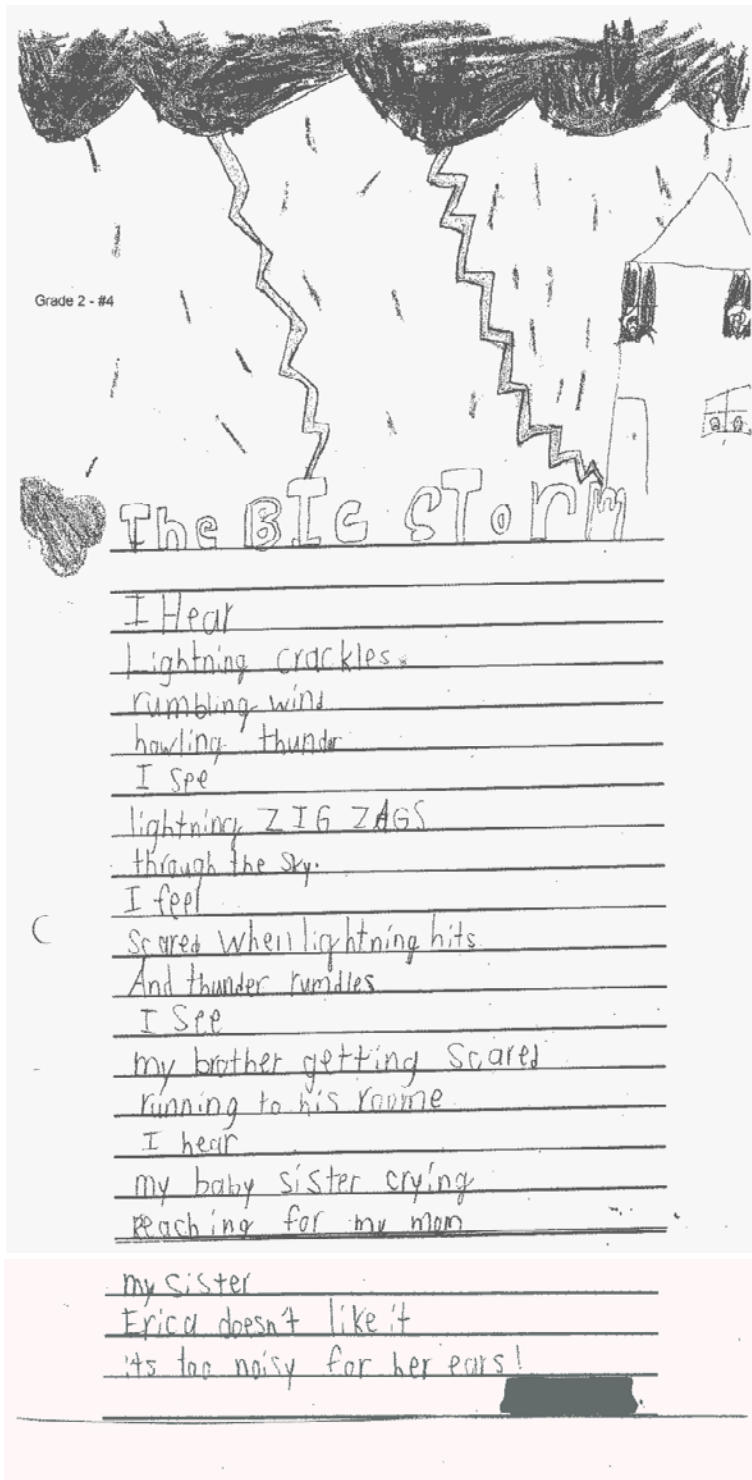 Grade 2 - #4
The BIG STorm
I Hear
Lightning crackles.
rumbling wind
howling thunder
I see
lightning ZIG ZAGS
through the sky.
I feel
Scared when lightning hits
And thunder rumdles
I See
my brother getting Scared
running to his roome
I hear
my baby sister crying
Reaching for my mom
my sister
Erica doesn't like it
its too noisy for her ears!